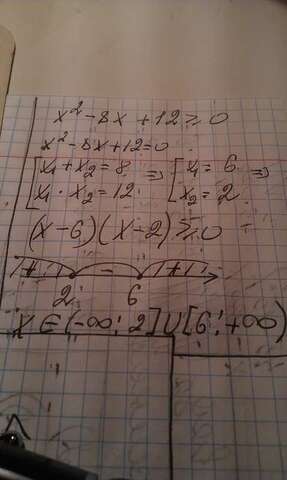 x² - 8x + 12 ≥ 0
x² - 8x + 12 = 0
[x₁ + x₂ = 8 => [x₁ = 6 =>
[x₁ · x₂ = 12 [x₂ = 2
(x - 6)(x - 2) ≥ 0
+ - +
2 6
x ∈ (-∞; 2] ∪ [6; +∞)